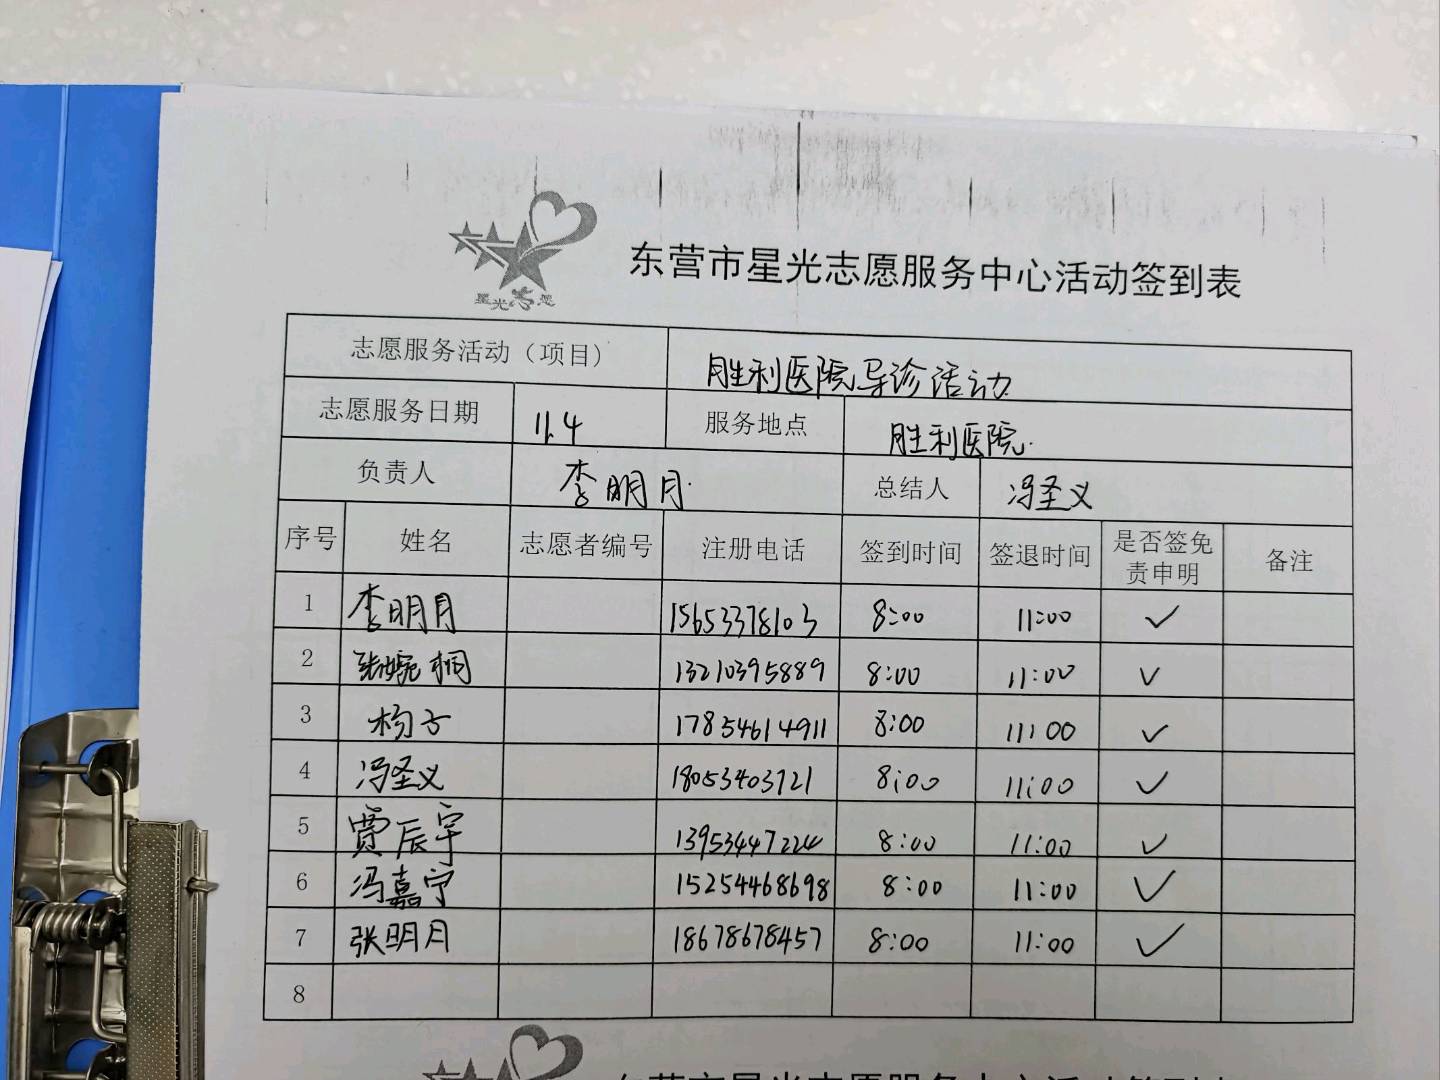 星光志愿
东营市星光志愿服务中心活动签到表
志愿服务活动（项目） 胜利医院导诊活动
志愿服务日期 11.4 服务地点 胜利医院.
负责人 李明月. 总结人 冯圣义
序号 姓名 志愿者编号 注册电话 签到时间 签退时间 是否签免责申明 备注
1 李明月 15653378103 8:00 11:00 ✓
2 张婉桐 13210395889 8:00 11:00 ✓
3 杨子 17854614911 8:00 11:00 ✓
4 冯圣义 18053403721 8:00 11:00 ✓
5 贾辰宇 13953447224 8:00 11:00 ✓
6 冯嘉宁 15254468698 8:00 11:00 ✓
7 张明月 18678678457 8:00 11:00 ✓
8
东营市星光志愿服务中心活动签到表